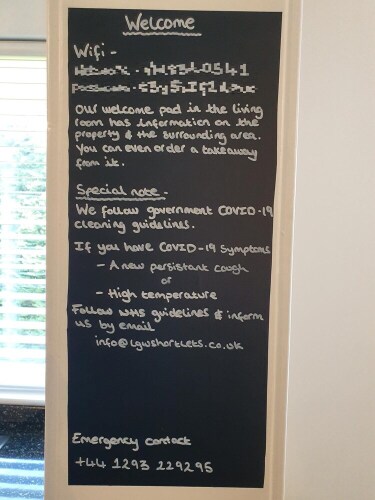 Welcome
Wifi -
Our welcome pad in the living
room has information on the
property & the surrounding area.
You can even order a takeaway
from it.
Special note -
We follow government COVID-19
cleaning guidelines.
If you have COVID-19 symptoms
- A new persistant cough
or
- High temperature
Follow NHS guidelines & inform
us by email
info@lgwshortlets.co.uk
Emergency contact
+44 1293 229295